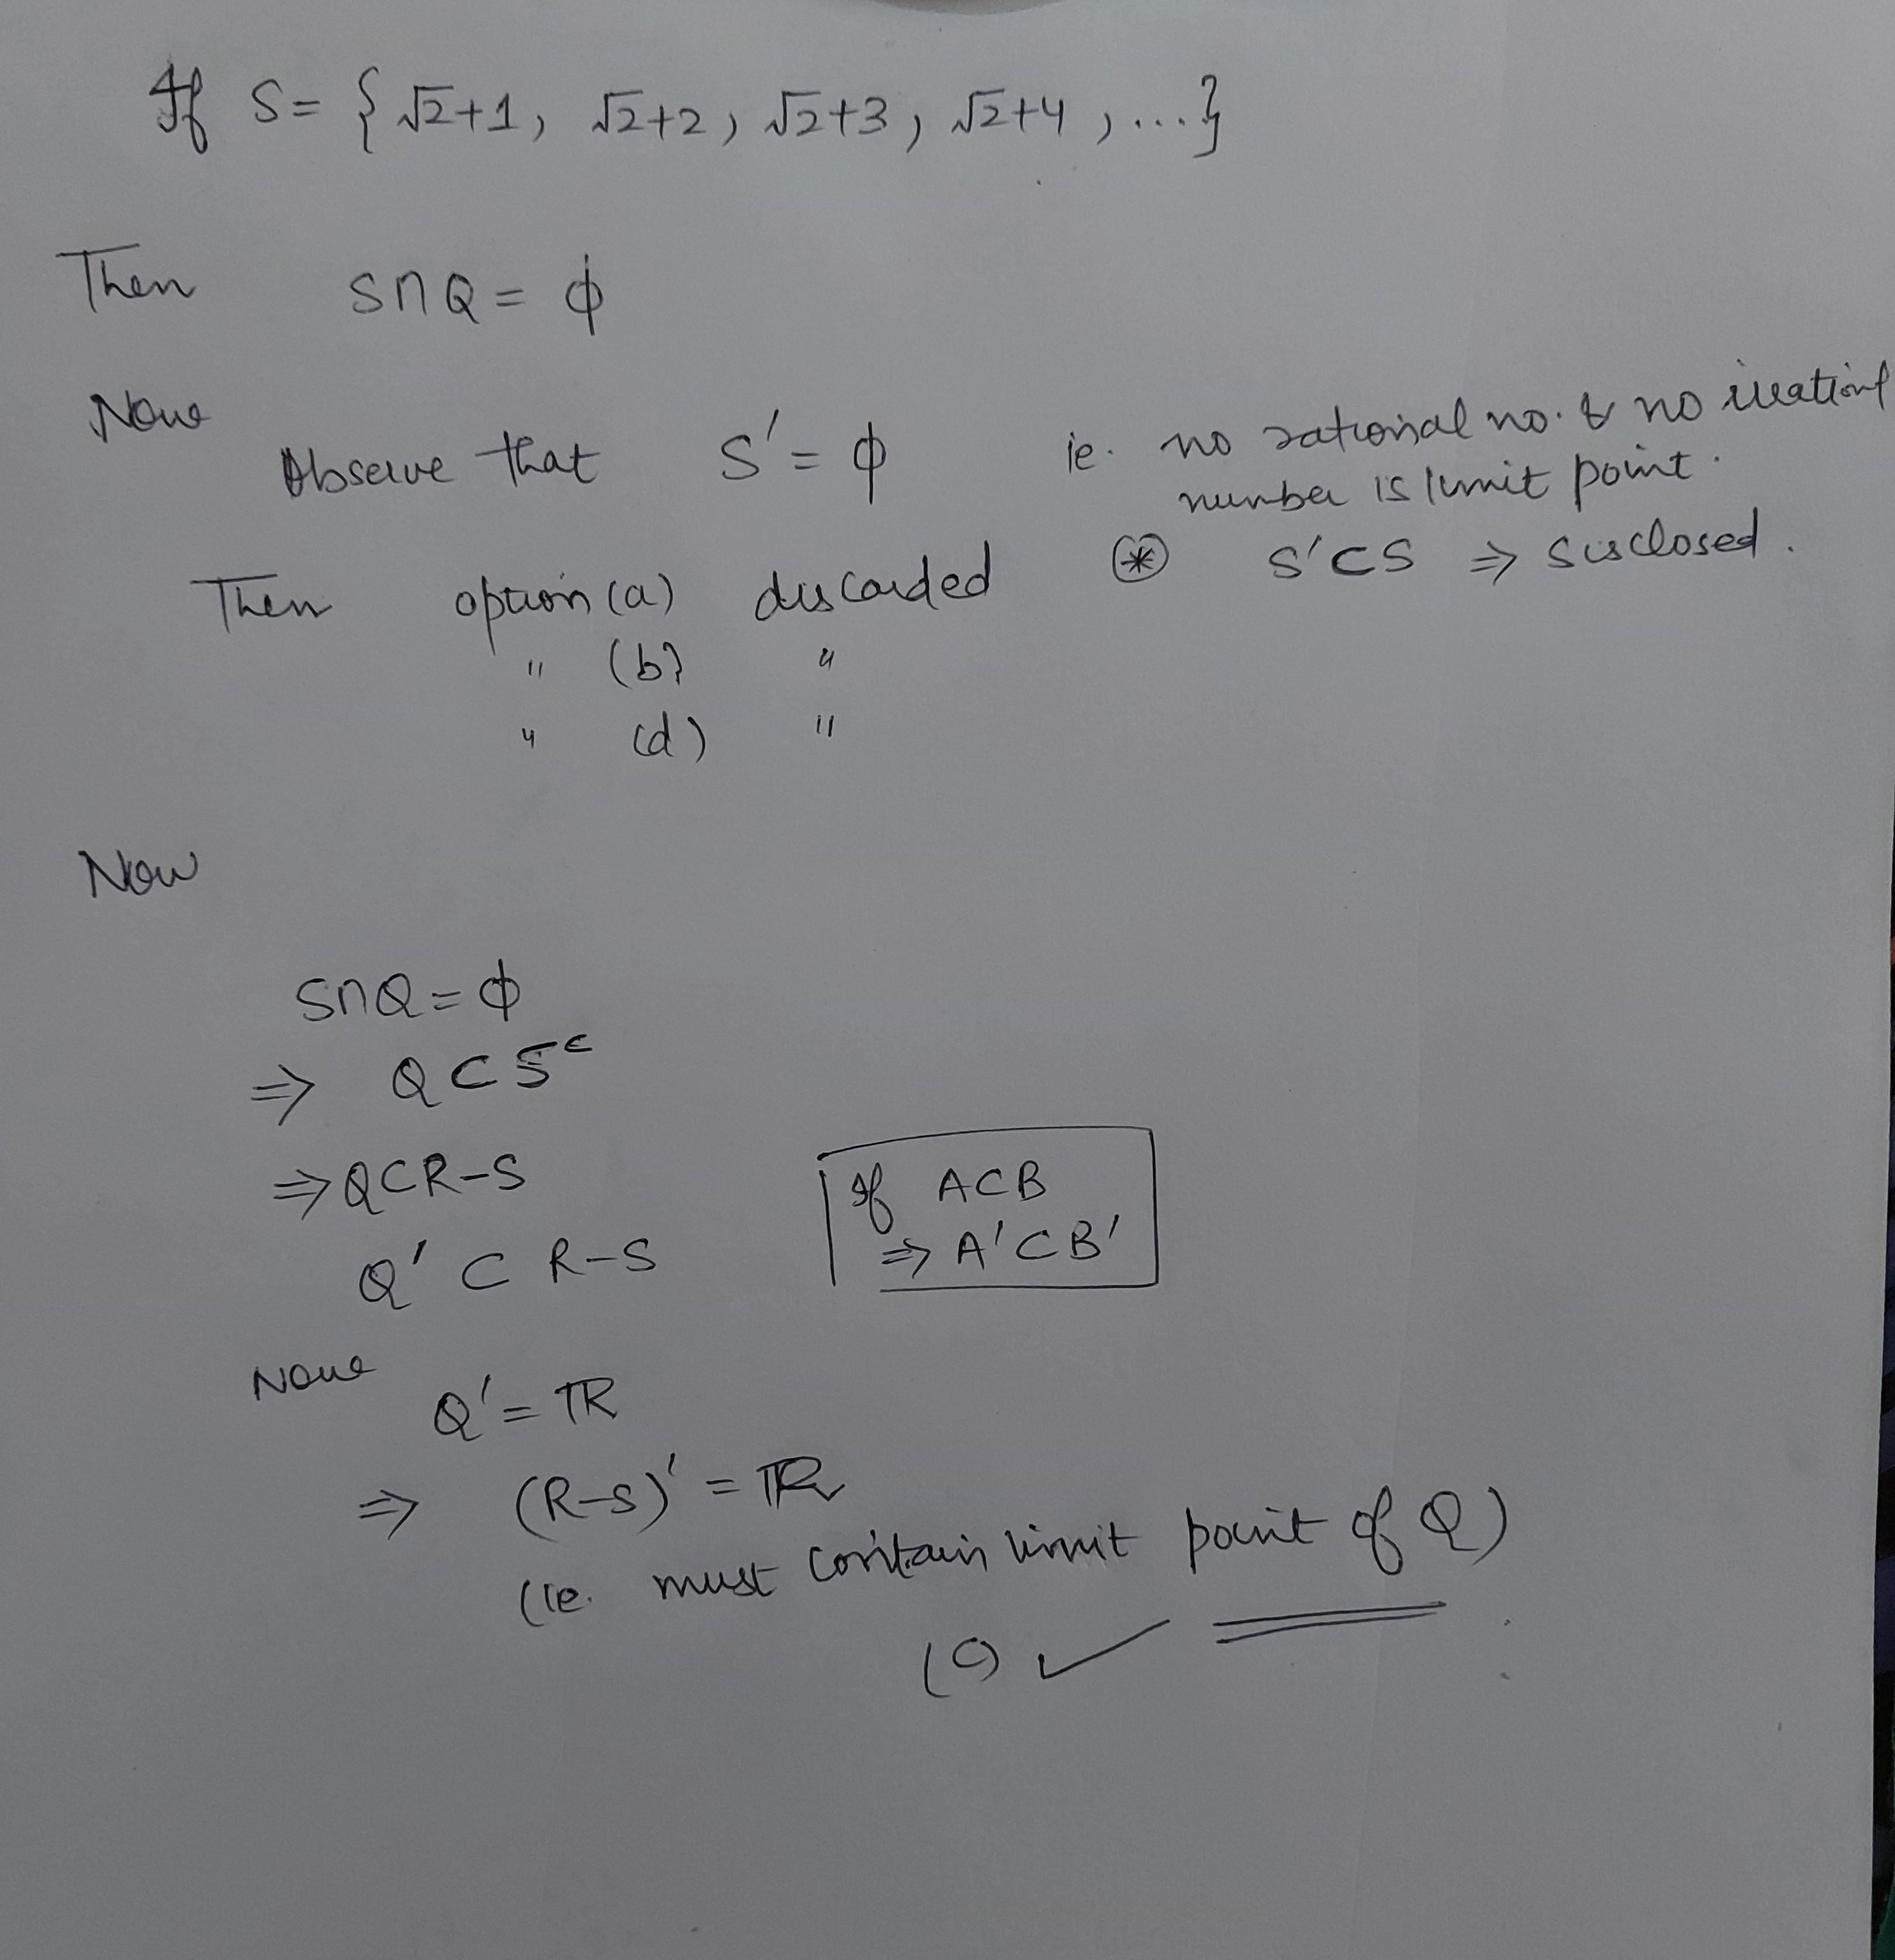 If S = { √2+1, √2+2, √2+3, √2+4, ...}
Then S∩Q = ϕ
Now
Observe that S' = ϕ ie. no rational no. & no irrational
number is limit point.
Then option (a) discarded ⊛ S'⊂S ⇒ S is closed.
" (b) "
" (d) "
Now
S∩Q = ϕ
⇒ Q ⊂ S^c
⇒ Q⊂R-S
Q' ⊂ R-S
If A⊂B
⇒ A'⊂B'
Now
Q' = ℝ
⇒ (R-S)' = ℝ
(ie. must contain limit point of Q)
(c) ✓